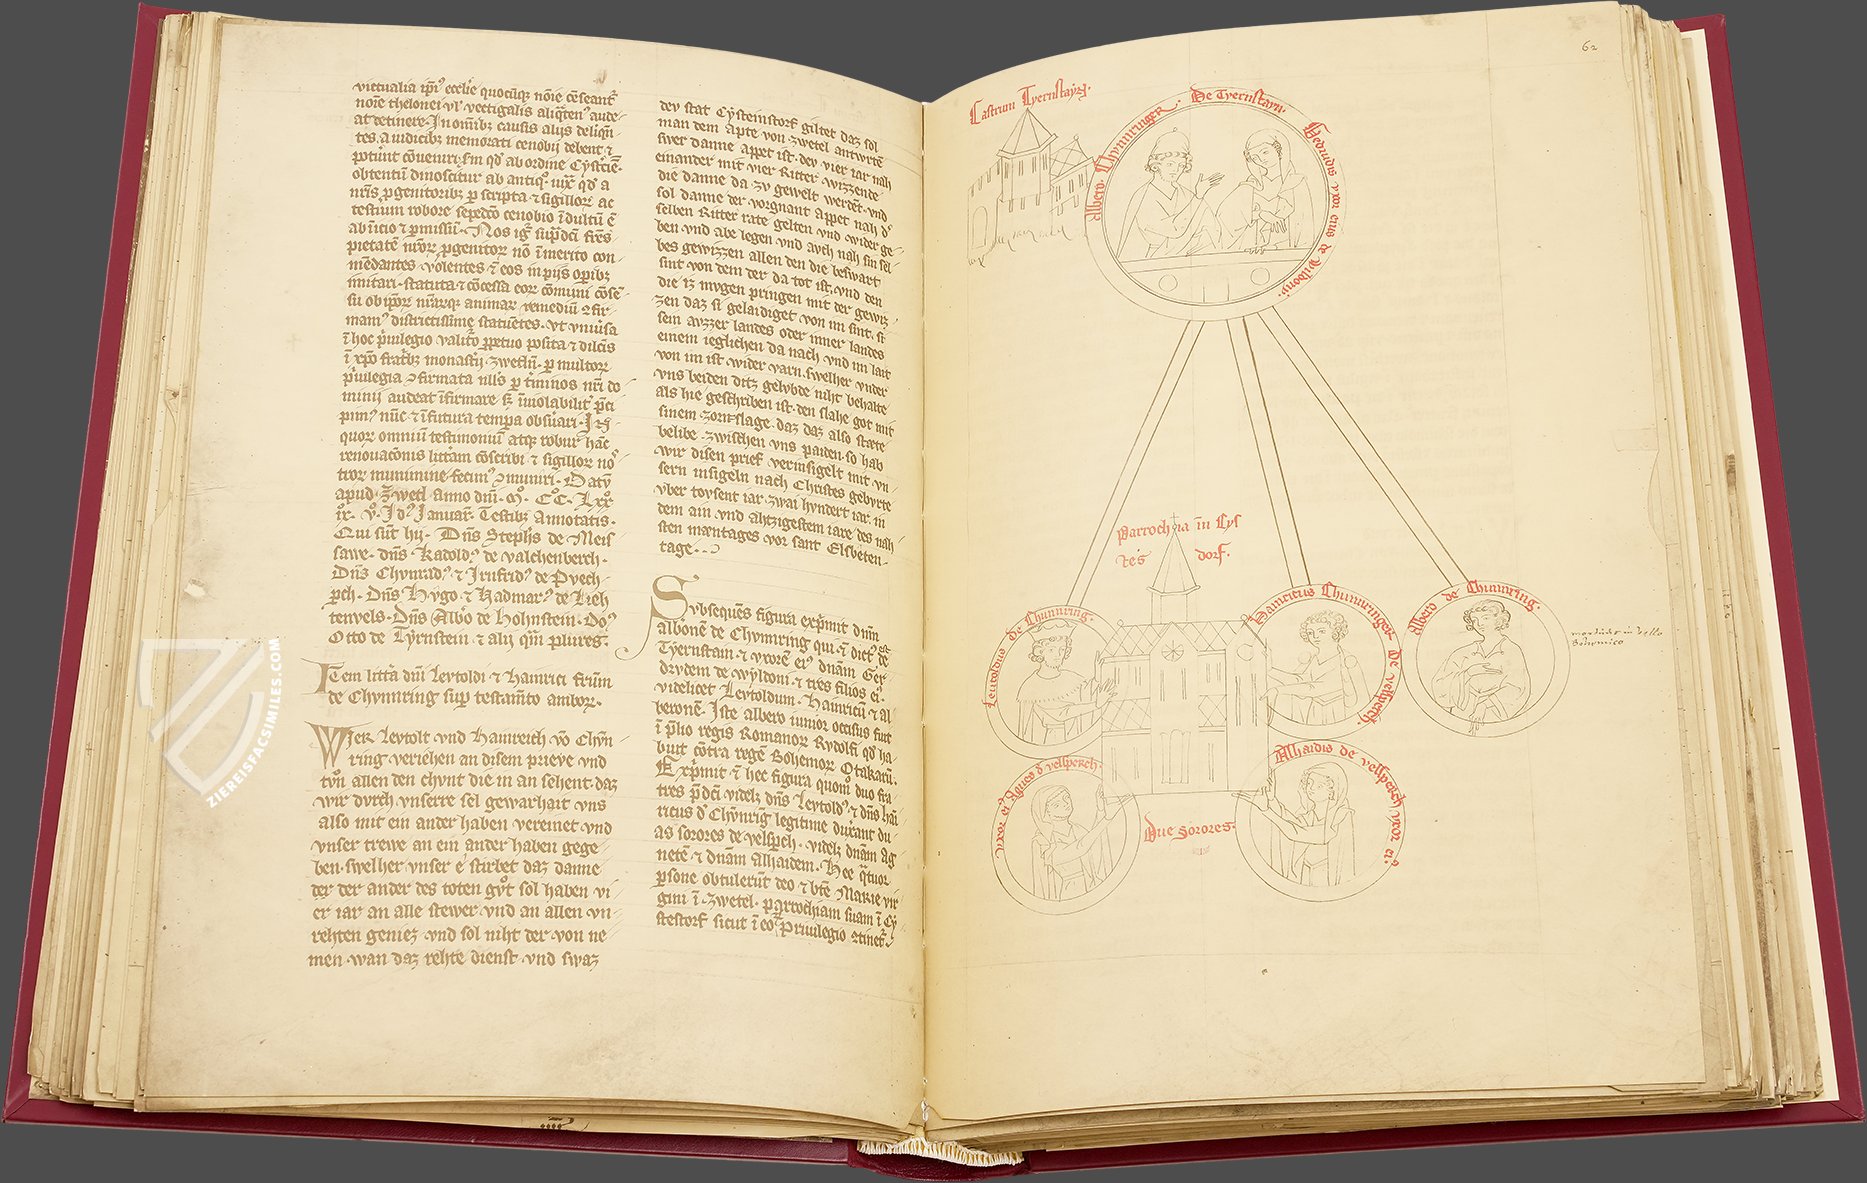 victualia ip̄i9 ecclīe quocūq; nōīe cēseant̄
nōīe thelonei vl' vectigalis aliq̄ten9 aude-
at detinere. In om̄ib; causis alijs deliq̄n
tes a iudicib; memorati cenobij debent ⁊
pot̄unt cōueniri.
obtentū dinoscitur ab antiq°.
n̄ris p̱genitorib; p̱ scripta ⁊ sigillor̄ ac
testium robore sepedc̄o cenobio īdultū ē
pietatē nr̄or̄ p̱genitor̄ nō īmerito con-
mēdantes volentes ⁊ eos in pijs op̱ib;
imitari. statuta ⁊ cōcessa eor̄ cōmuni cōsē
mam9 districtissime statuētes. vt vniū'sa
ī hoc p̄uilegio valit̄o p̱petuo posita ⁊
ī xp̄o fratrib; monast̄ij zwetln̄. p̱ multor̄
p̄uilegia
minij audeat īfirmare
quor̄ omniū testimoniū atq; robur hāc
renouac̄onis litt̄am cōscribi ⁊ sigillor̄ nō
tror̄ munimine fecim9 ɔmuniri. Datū
apud zwetl anno dn̄i. M°. CC°. Lxx°
ix°. v°. Id9 Januar̄. Testib; Annotatis.
Qui sūt hij. Dn̄s Stephs de Meis
sawe. dn̄s. Kadold9 de valchenberch.
Dn̄s Chvnrad9. ⁊ Irnfrid9 de Pvech-
p̱ch. Dn̄s Hvgo. ⁊ Kadmar9 de Lieh
tenvels. Dn̄s Alb'o de Hohnstein. Do9
Otto de Tyrnstein ⁊ alij qm̄ plures.
Item litt̄a dn̄i Levtoldi ⁊ Hainrici frūm
de Chvnring sup̱ testam̄to ambor̄.
Wier Levtolt vnd Hainreich vō Chvn
ring veriehen an disem prieve vnd
tvn allen den chvnt die in an sehent. daz
wir dvrch vnserre sel gewarhait vns
also mit ein ander haben vereinet vnd
vnser trewe an ein ander haben gege
ben. swelher vnser e stirbet daz danne
der der ander des toten gvt sol haben vi
er iar an alle stewer. vnd an allen vn
rehten geniez vnd sol niht der von ne
men. wan daz rehte dienst. vnd swaz
dev stat Cysteinstorf giltet daz sol
man dem Apte von zwetel antwrtē
swer danne appet ist. dev vier iar nah
einander mit vier Ritter wizzende
die danne da zv gewelt werdēt. vnd
sol danne der vorgnant Appet nah d'
selben Ritter rate gelten vnd wider ge-
ben vnd abe legen vnd avch nah sin sel
bes gewizzen allen den die beswart
sint von dem der da tot ist. vnd den
die iz mvgen pringen mit der gewiz
zen daz si gelaidiget von im sint. si
sein avzzer landes oder inner landes
einem ieglichen da nach vnd im lait
von im ist wider varn. swelher vnder
vns beiden ditz gelvbde niht behalte
als hie geschriben ist. den slahe got mit
sinem zornslage. daz daz also stæte
belibe. zwischen vns paiden. so hab
wir disen prief verinsigelt mit vn
sern insigeln nach Christes gebvrte
vber tovsent iar. zwai hvndert iar. in
dem ain vnd ahtzigestem iare des næh
sten mæntages vor sant Elsveten-
tage.
Svbsequēs figura exp̱mit dn̄m
Albonē de Chvnring qui ⁊ dict9 ē de
Tyernstain. ⁊ vxorē ei9 dnām Ger
drvdem de wyldoni. ⁊ tres filios ei9.
videlicet Levtoldum. Hainricū ⁊ al
beronē. Iste albero iunior occisus fuit
ī p̱lio regis Romanor̄ Rvdolfi qd' ha
buit cōtra regē Bohemor̄ Otakarū.
Exp̱mit ⁊ hec figura quom̄ duo fra
tres p̄dc̄i videlz dn̄s Levtold9 ⁊ dn̄s hai
ricus d' Chvnrig legitime dux̄ant du-
as sorores de velsp̱ch. videlz dnām Ag
netē ⁊ dnām Alhaidem. Hee q̄tuor
p̱sone obtulerūt deo ⁊ bt̄e Marie vir
gini ī zwetel. parrochiam suam ī Cy
stestorf sicut ī eor̄ Priuilegio ɔtinet̄.
62
Castrum Tyernstayn.
Albero Chvnringer. De Tyernstayn.
Gedrudis vxor eius de wildony.
Parrochia in Cys
tes dorf.
Leutoldus de Chunring.
Hainricus Chunringer De velsperch.
Albero de Chunring.
mortuus in bello
Bohemico
vxor ei9 Agnes d' velsperch.
Due Sorores.
Alhaidis de velsperch vxor ei9
ZIEREISFACSIMILES.COM